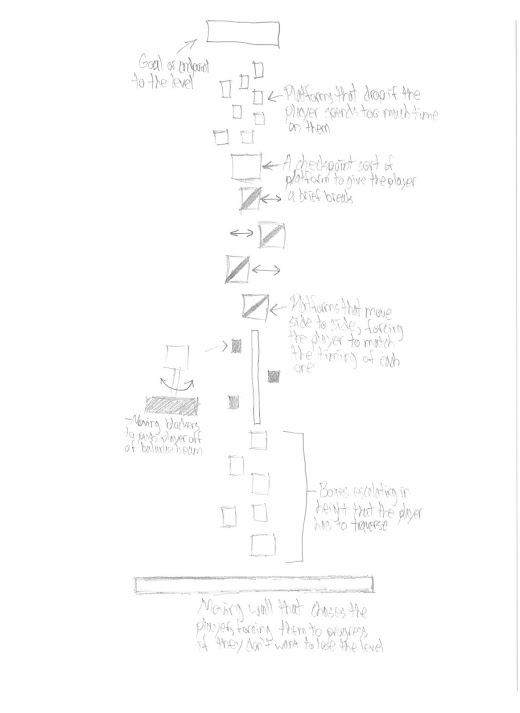 Goal or endpoint
to the level
Platforms that drop if the
player spends too much time
on them
A checkpoint sort of
platform to give the player
a brief break
Platforms that move
side to side, forcing
the player to match
the timing of each
one
-Moving blockers
to player off
of balance beam
Boxes escalating in
height that the player
has to traverse
Moving wall that chases the
player, forcing them to progress
if they don't want to lose the level